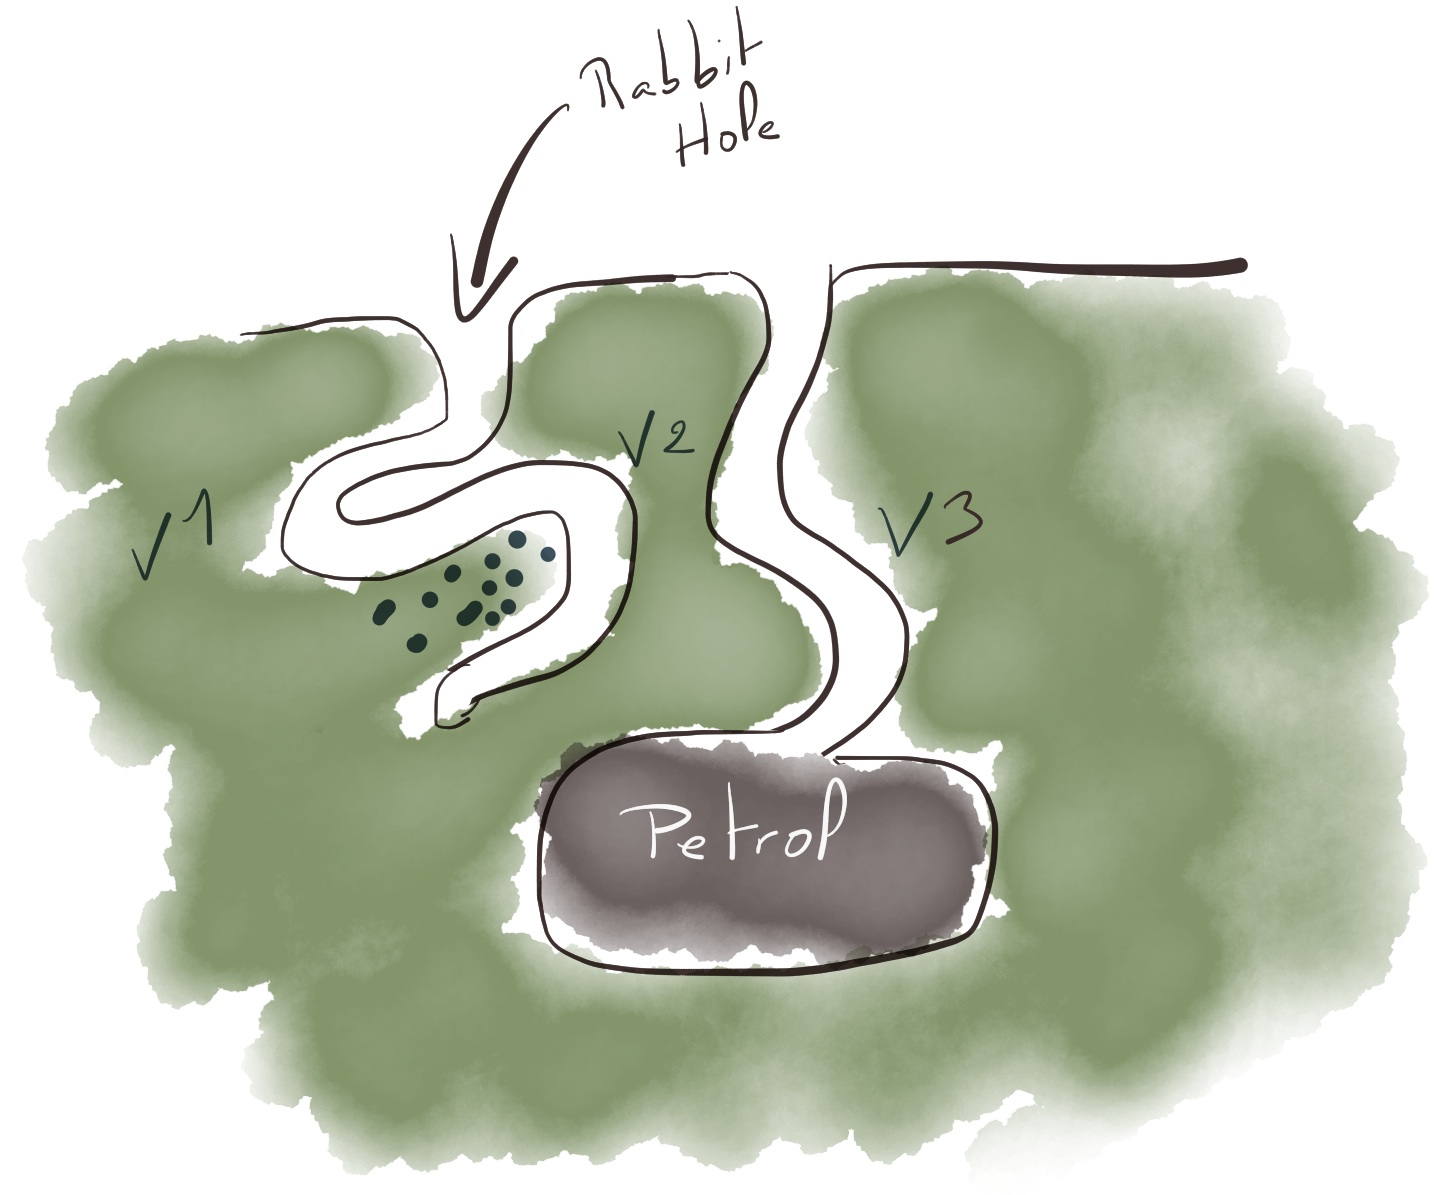 Rabbit
Hole
V2
V1
V3
Petrol